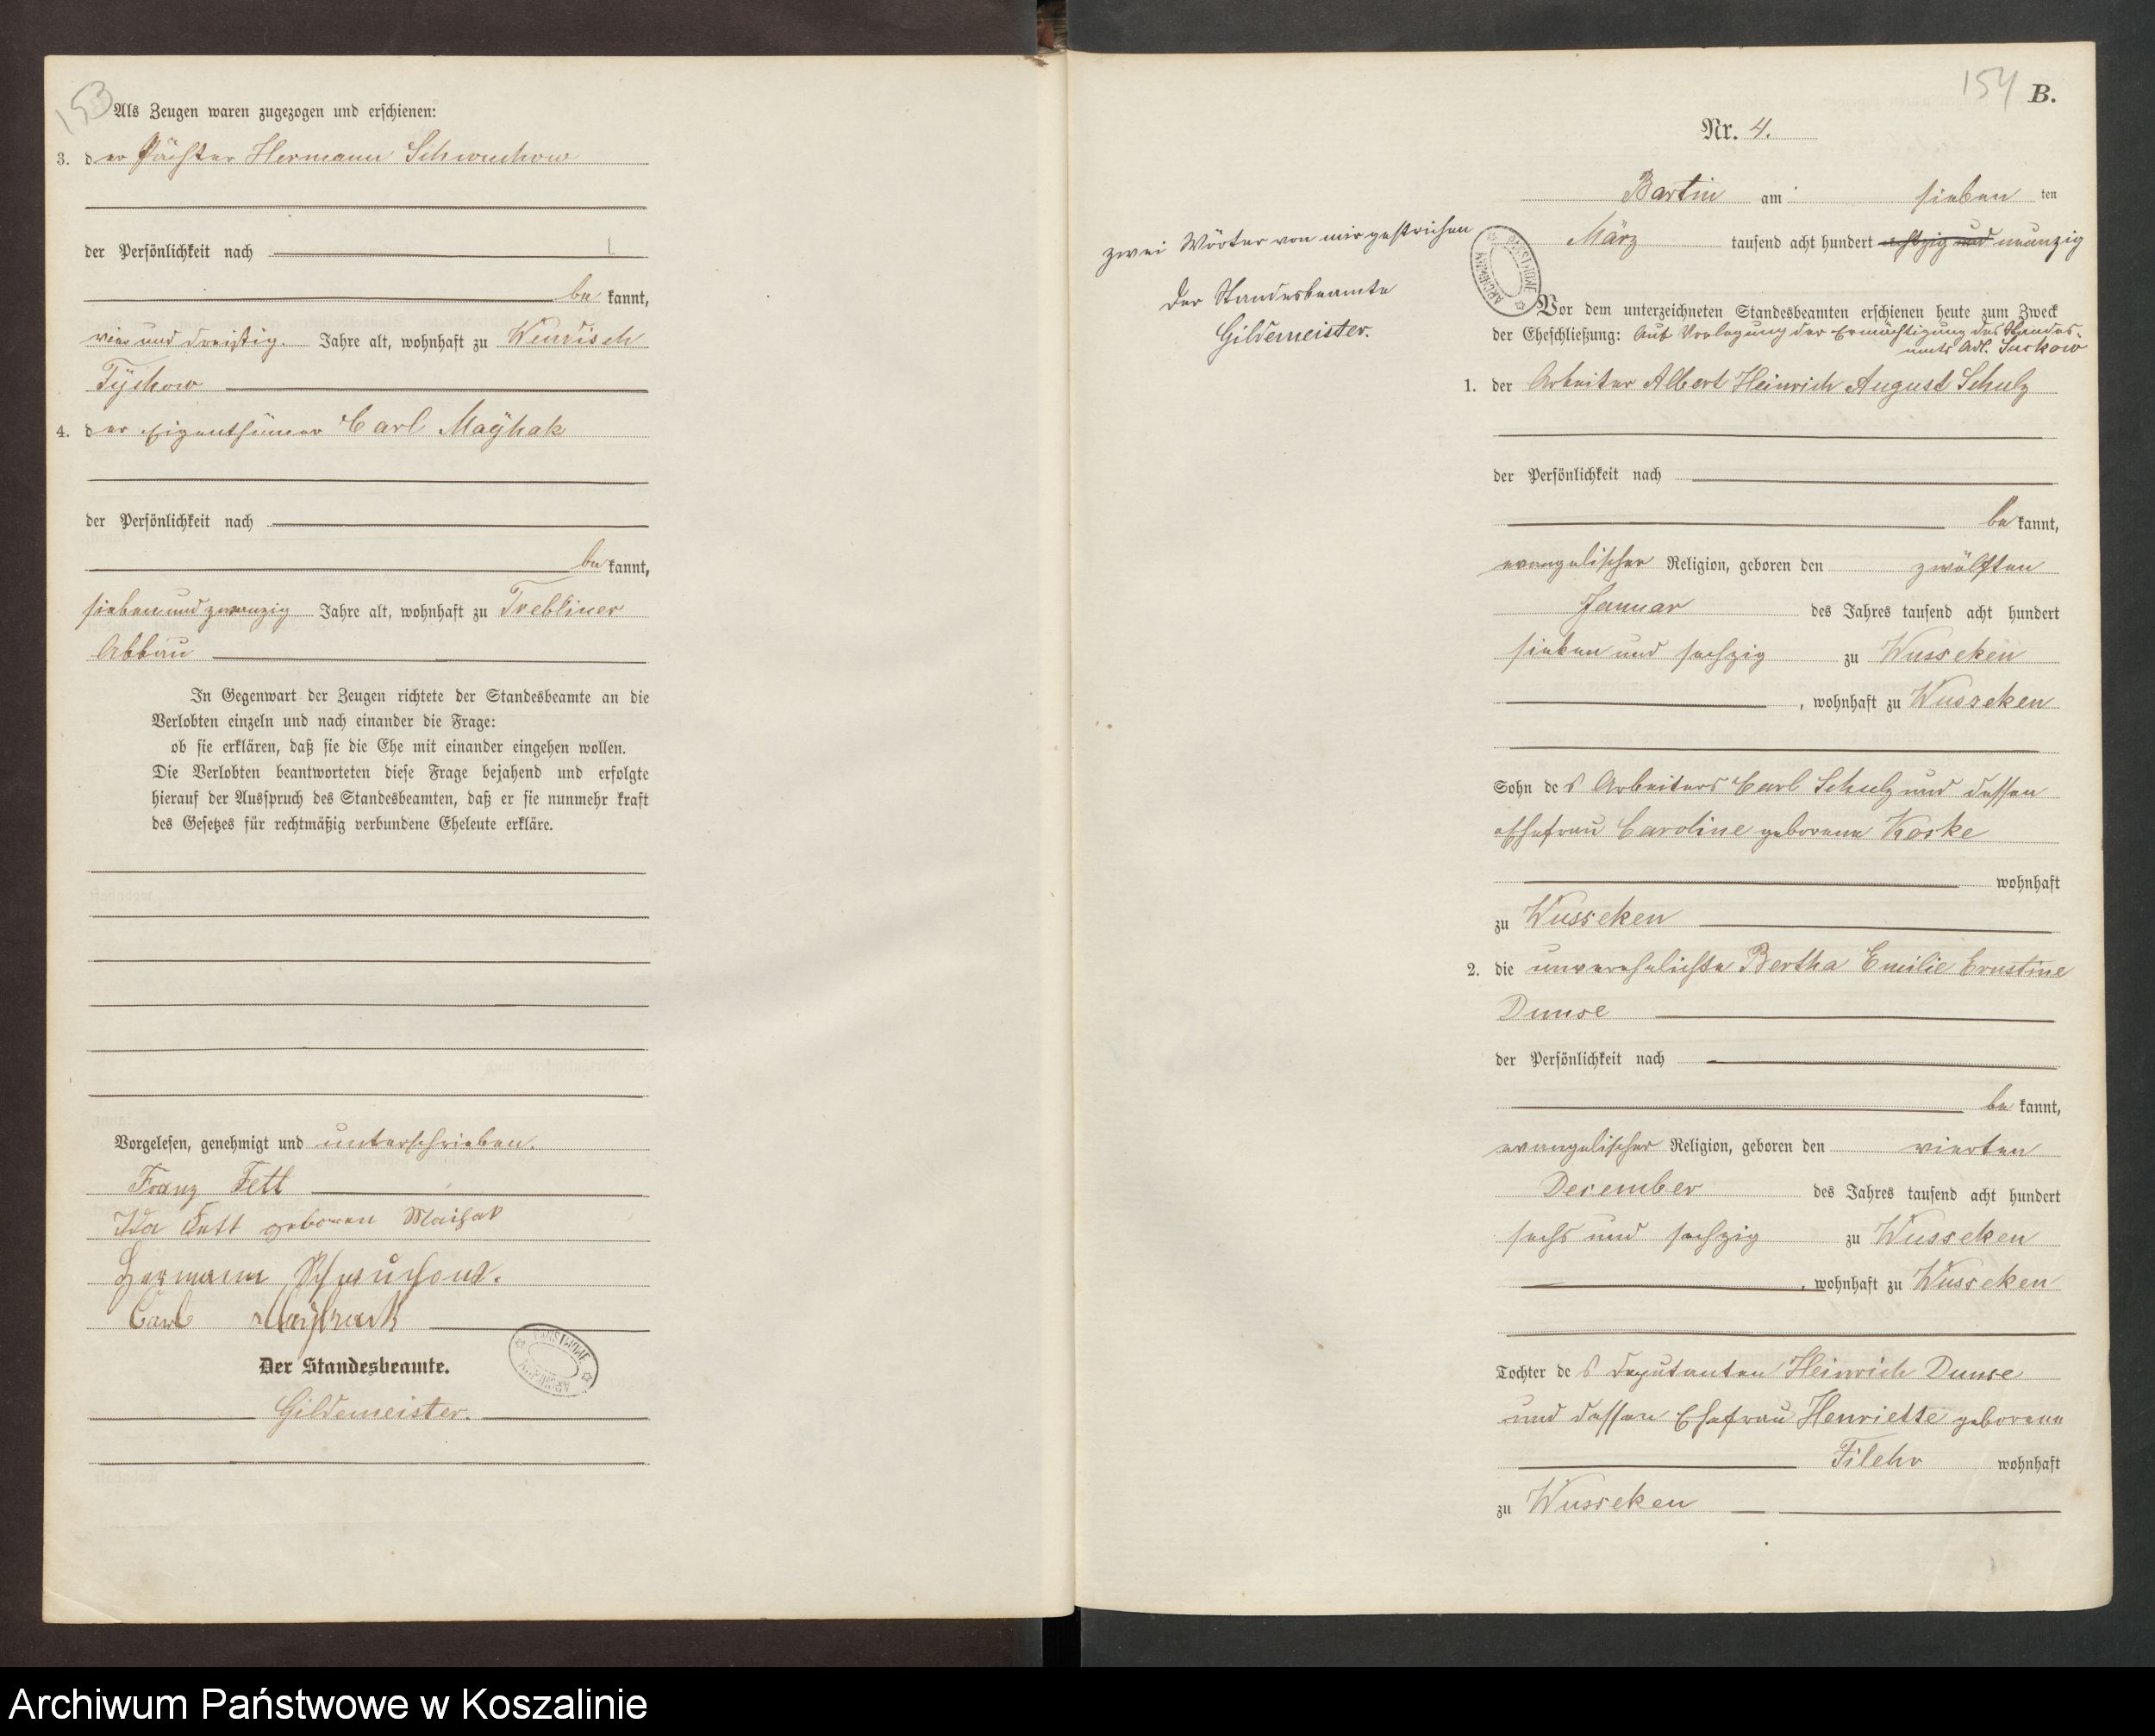 153
Als Zeugen waren zugezogen und erschienen:
3. der Pächter Hermann Schwuchow
der Persönlichkeit nach
be kannt,
vier und dreißig. Jahre alt, wohnhaft zu Wendisch
Tychow
4. der Eigenthümer Carl Maÿhak
der Persönlichkeit nach
be kannt,
sieben und zwanzig Jahre alt, wohnhaft zu Trebliner
Abbau
In Gegenwart der Zeugen richtete der Standesbeamte an die
Verlobten einzeln und nach einander die Frage:
ob sie erklären, daß sie die Ehe mit einander eingehen wollen.
Die Verlobten beantworteten diese Frage bejahend und erfolgte
hierauf der Ausspruch des Standesbeamten, daß er sie nunmehr kraft
des Gesetzes für rechtmäßig verbundene Eheleute erkläre.
Vorgelesen, genehmigt und unterschrieben.
Franz Fett
Ida Fett geboren Maihak
Hermann Schwuchow.
Carl Mayhack
Der Standesbeamte.
Gildemeister.
154
B.
Nr. 4.
Bartin am sieben ten
März tausend acht hundert achtzig und neunzig
zwei Wörter von mir gestrichen
Der Standesbeamte
Gildemeister.
ARCHIWUM PAŃSTWOWE
Vor dem unterzeichneten Standesbeamten erschienen heute zum Zweck
der Eheschließung: Auf Vorlegung der Ermächtigung des Standes-
amts Adl. Suckow
1. der Arbeiter Albert Heinrich August Schulz
der Persönlichkeit nach
be kannt,
evangelischer Religion, geboren den zwölften
Januar des Jahres tausend acht hundert
sieben und sechzig zu Wusseken
, wohnhaft zu Wusseken
Sohn des Arbeiters Carl Schulz und dessen
Ehefrau Caroline geborene Koske
wohnhaft
zu Wusseken
2. die unverehelichte Bertha Emilie Ernstine
Dunse
der Persönlichkeit nach
be kannt,
evangelischer Religion, geboren den vierten
December des Jahres tausend acht hundert
sechs und sechzig zu Wusseken
, wohnhaft zu Wusseken
Tochter des Deputanten Heinrich Dunse
und dessen Ehefrau Henriette geborene
Filehr wohnhaft
zu Wusseken
Archiwum Państwowe w Koszalinie